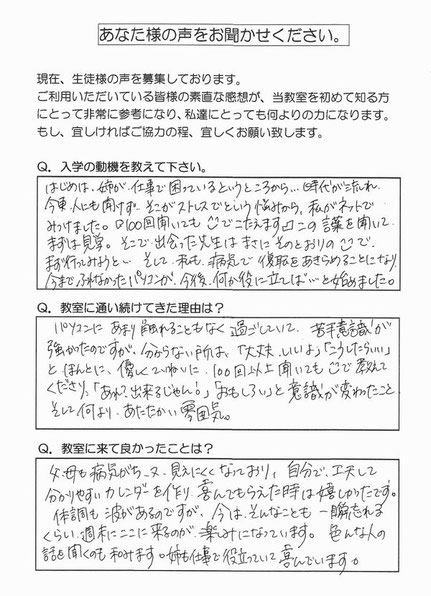 あなた様の声をお聞かせください。
現在、生徒様の声を募集しております。
ご利用いただいている皆様の素直な感想が、当教室を初めて知る方
にとって非常に参考になり、私達にとっても何よりの力になります。
もし、宜しければご協力の程、宜しくお願い致します。
Q. 入学の動機を教えて下さい。
はじめは、姉が仕事で困っているというところから… 時代が流れ、
今更、人にも聞けず、そこがストレスでという悩みから、私がネットで
みつけました。□100回聞いても☺でこたえます□この言葉を聞いて、
まずは見学。そこで出会った先生はまさにそのとおりの☺で、
まず行ってみようと… そして、私も、病気で復職をあきらめることになり
今までふれなかったパソコンが、今後、何か役に立てば…と始めました。
Q. 教室に通い続けてきた理由は？
パソコンにあまり触れることもなく過ごしていて、苦手意識が
強かったのですが、分からない所は、「大丈夫、いいよ」「こうしたらいい」
とほんとに、優しくていねいに、100回以上聞いても☺で教えて
くださり、「あれ？出来るじゃん！」「おもしろい」と意識が変わったこと
そして何より、あたたかい雰囲気。
Q. 教室に来て良かったことは？
父、母も病気がち…又、見えにくくなっており、自分で、工夫して
分かりやすいカレンダーを作り、喜んでもらえた時は嬉しかったです。
体調も波があるのですが、今は、そんなことも一瞬忘れる
くらい、週末にここに来るのが、楽しみになっています。色んな人の
話を聞くのも和みます。姉も仕事で役立っていて喜んでいます。